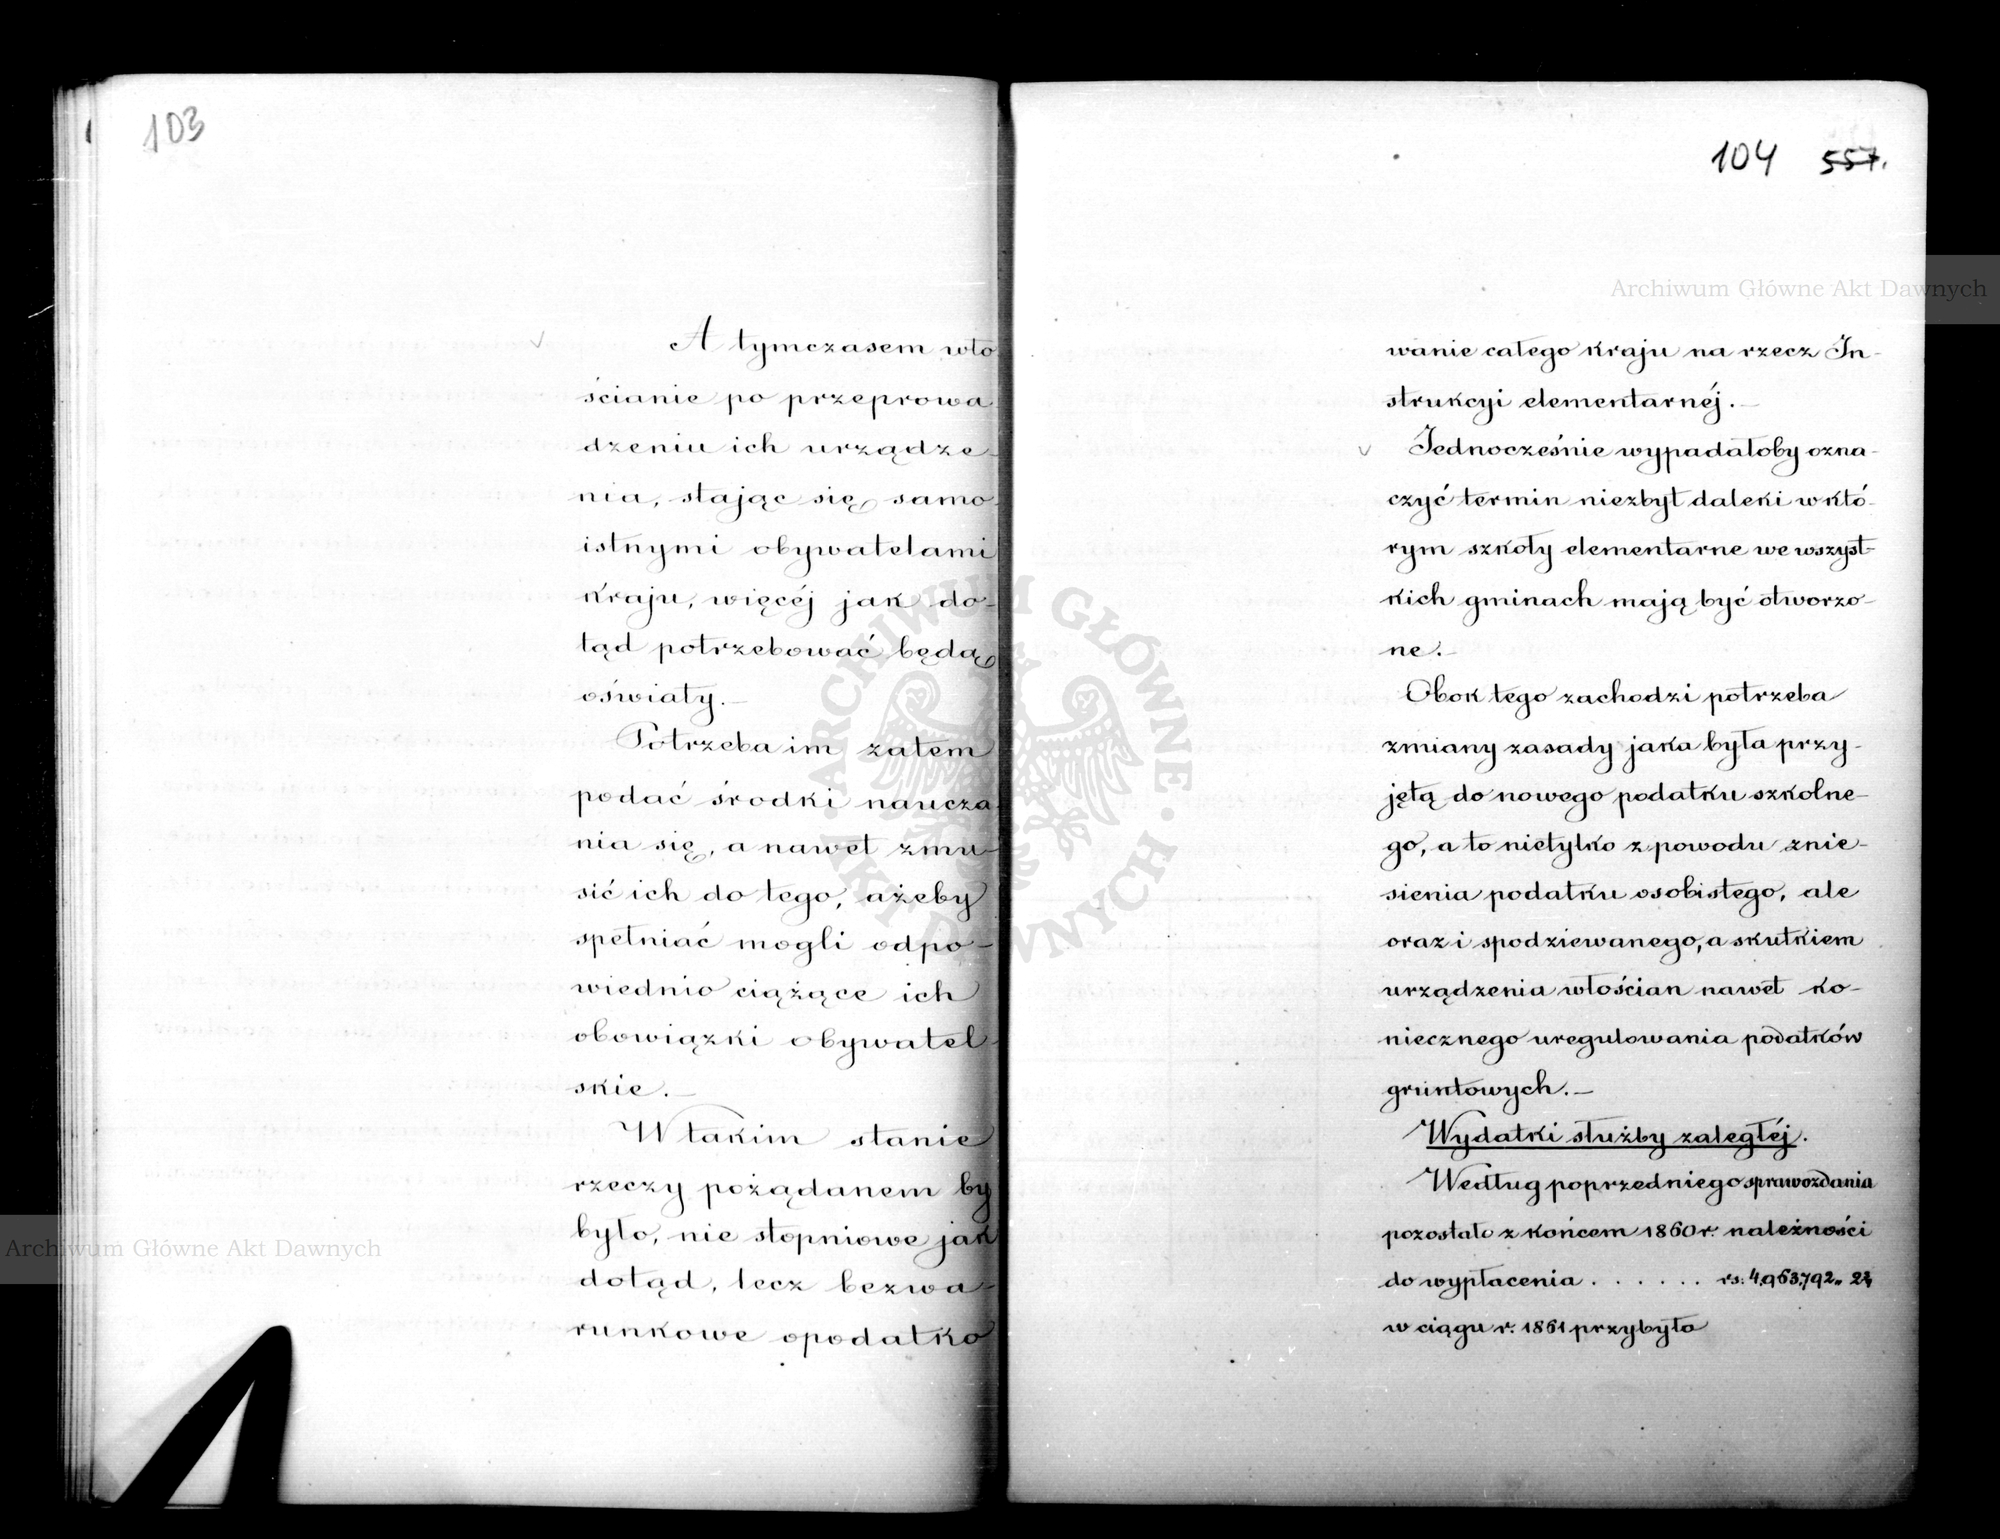 103
A tymczasem wło
ścianie po przeprowa
dzeniu ich urządze-
nia, stając się samo
istnymi obywatelami
kraju, więcéj jak do-
tąd potrzebować będą
oświaty.—
Potrzeba im zatem
podać środki naucza
nia się, a nawet zmu-
sić ich do tego, ażeby
spełniać mogli odpo-
wiednio ciążące ich
obowiązki obywatel-
skie.—
W takim stanie
rzeczy pożądanem by
było, nie stopniowe jak
dotąd, lecz bezwa-
runkowe opodatko
104 557.
wanie całego kraju na rzecz In-
strukcyi elementarnéj.—
Jednocześnie wypadałoby ozna-
czyć termin niezbyt daleki w któ-
rym szkoły elementarne we wszyst-
kich gminach mają być otworzo-
ne.—
Obok tego zachodzi potrzeba
zmiany zasady jaka była przy-
jętą do nowego podatku szkolne-
go, a to nietylko z powodu znie-
sienia podatku osobistego, ale
oraz i spodziewanego, a skutkiem
urządzenia włościan nawet ko-
niecznego uregulowania podatków
gruntowych.—
Wydatki służby zaległéj.
Według poprzedniego sprawozdania
pozostało z końcem 1860 r. należności
do wypłacenia . . . . . . rs: 4,963,792„
w ciągu r. 1861 przybyło
Archiwum Główne Akt Dawnych
Archiwum Główne Akt Dawnych
ARCHIWUM GŁÓWNE · AKT DAWNYCH ·